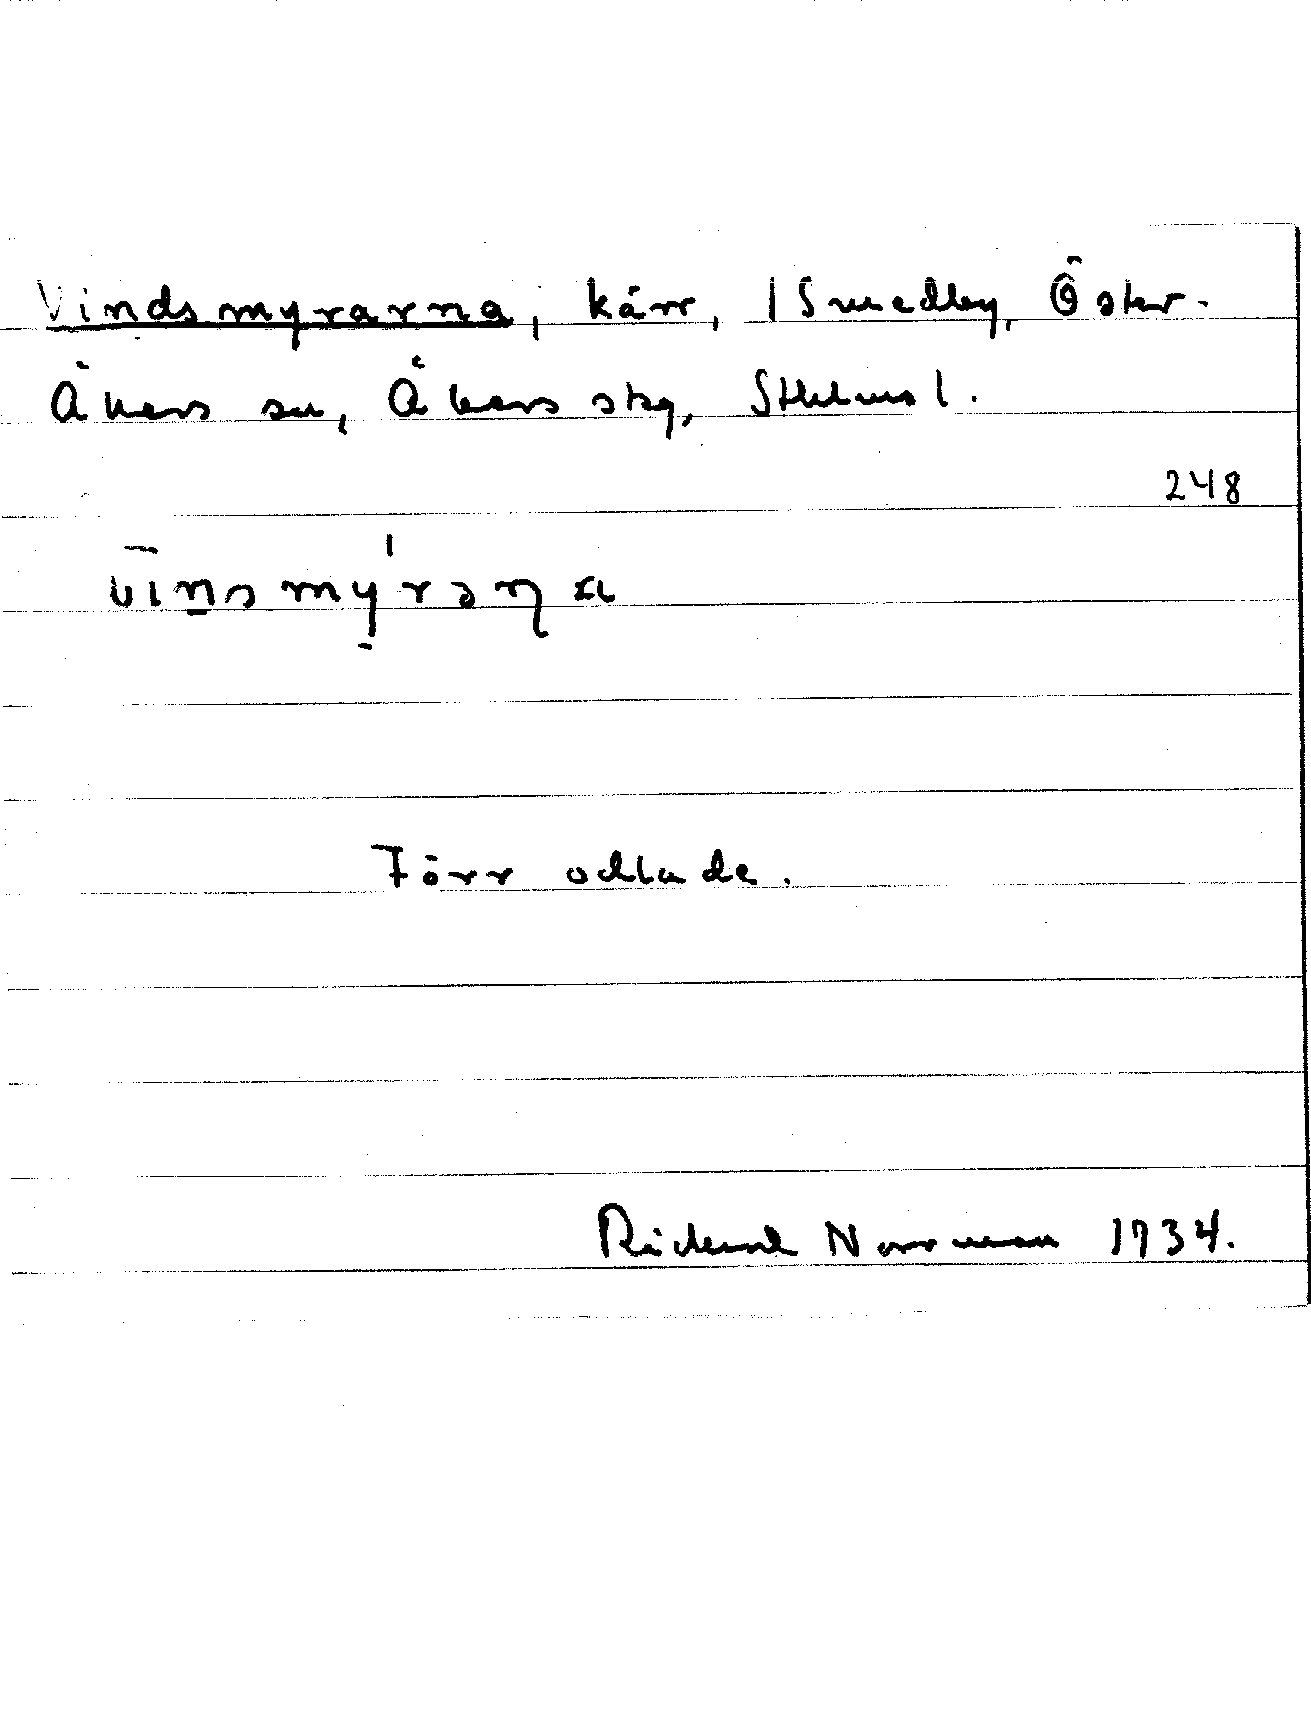 Vindsmyrarna, kärr, 1 Smedby, Öster-
Åkers sn, Åkers skg, Sthlms l.
248
vinsmýrəṇa
Förr odlade.
Rickard Norrman 1934.